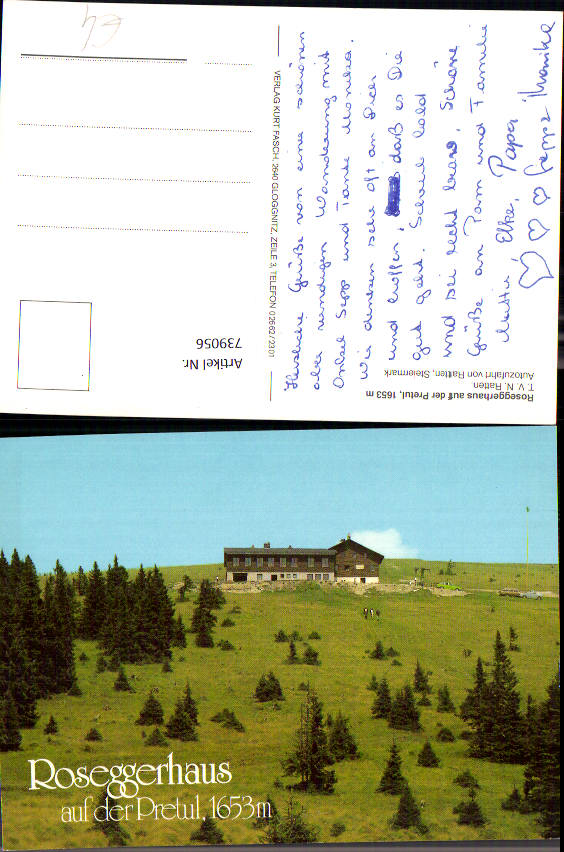 Herzliche Grüße von einer schönen
aber windigen Wanderung mit
Onkel Sepp und Tante Monika.
Wir denken sehr oft an Dich
und hoffen, daß es Dir
gut geht. Schreib bald
und sei recht brav, Schöne
Grüße an Tom und Familie
Mutti, Elke, Papa
Seppi Monika
VERLAG KURT FASCH, 2640 GLOGGNITZ, ZEILE 3, TELEFON 02662/2301
Artikel Nr.
739056
Roseggerhaus auf der Pretul, 1653 m
T. V. N. Ratten
Autozufahrt von Ratten, Steiermark
Roseggerhaus
auf der Pretul, 1653m